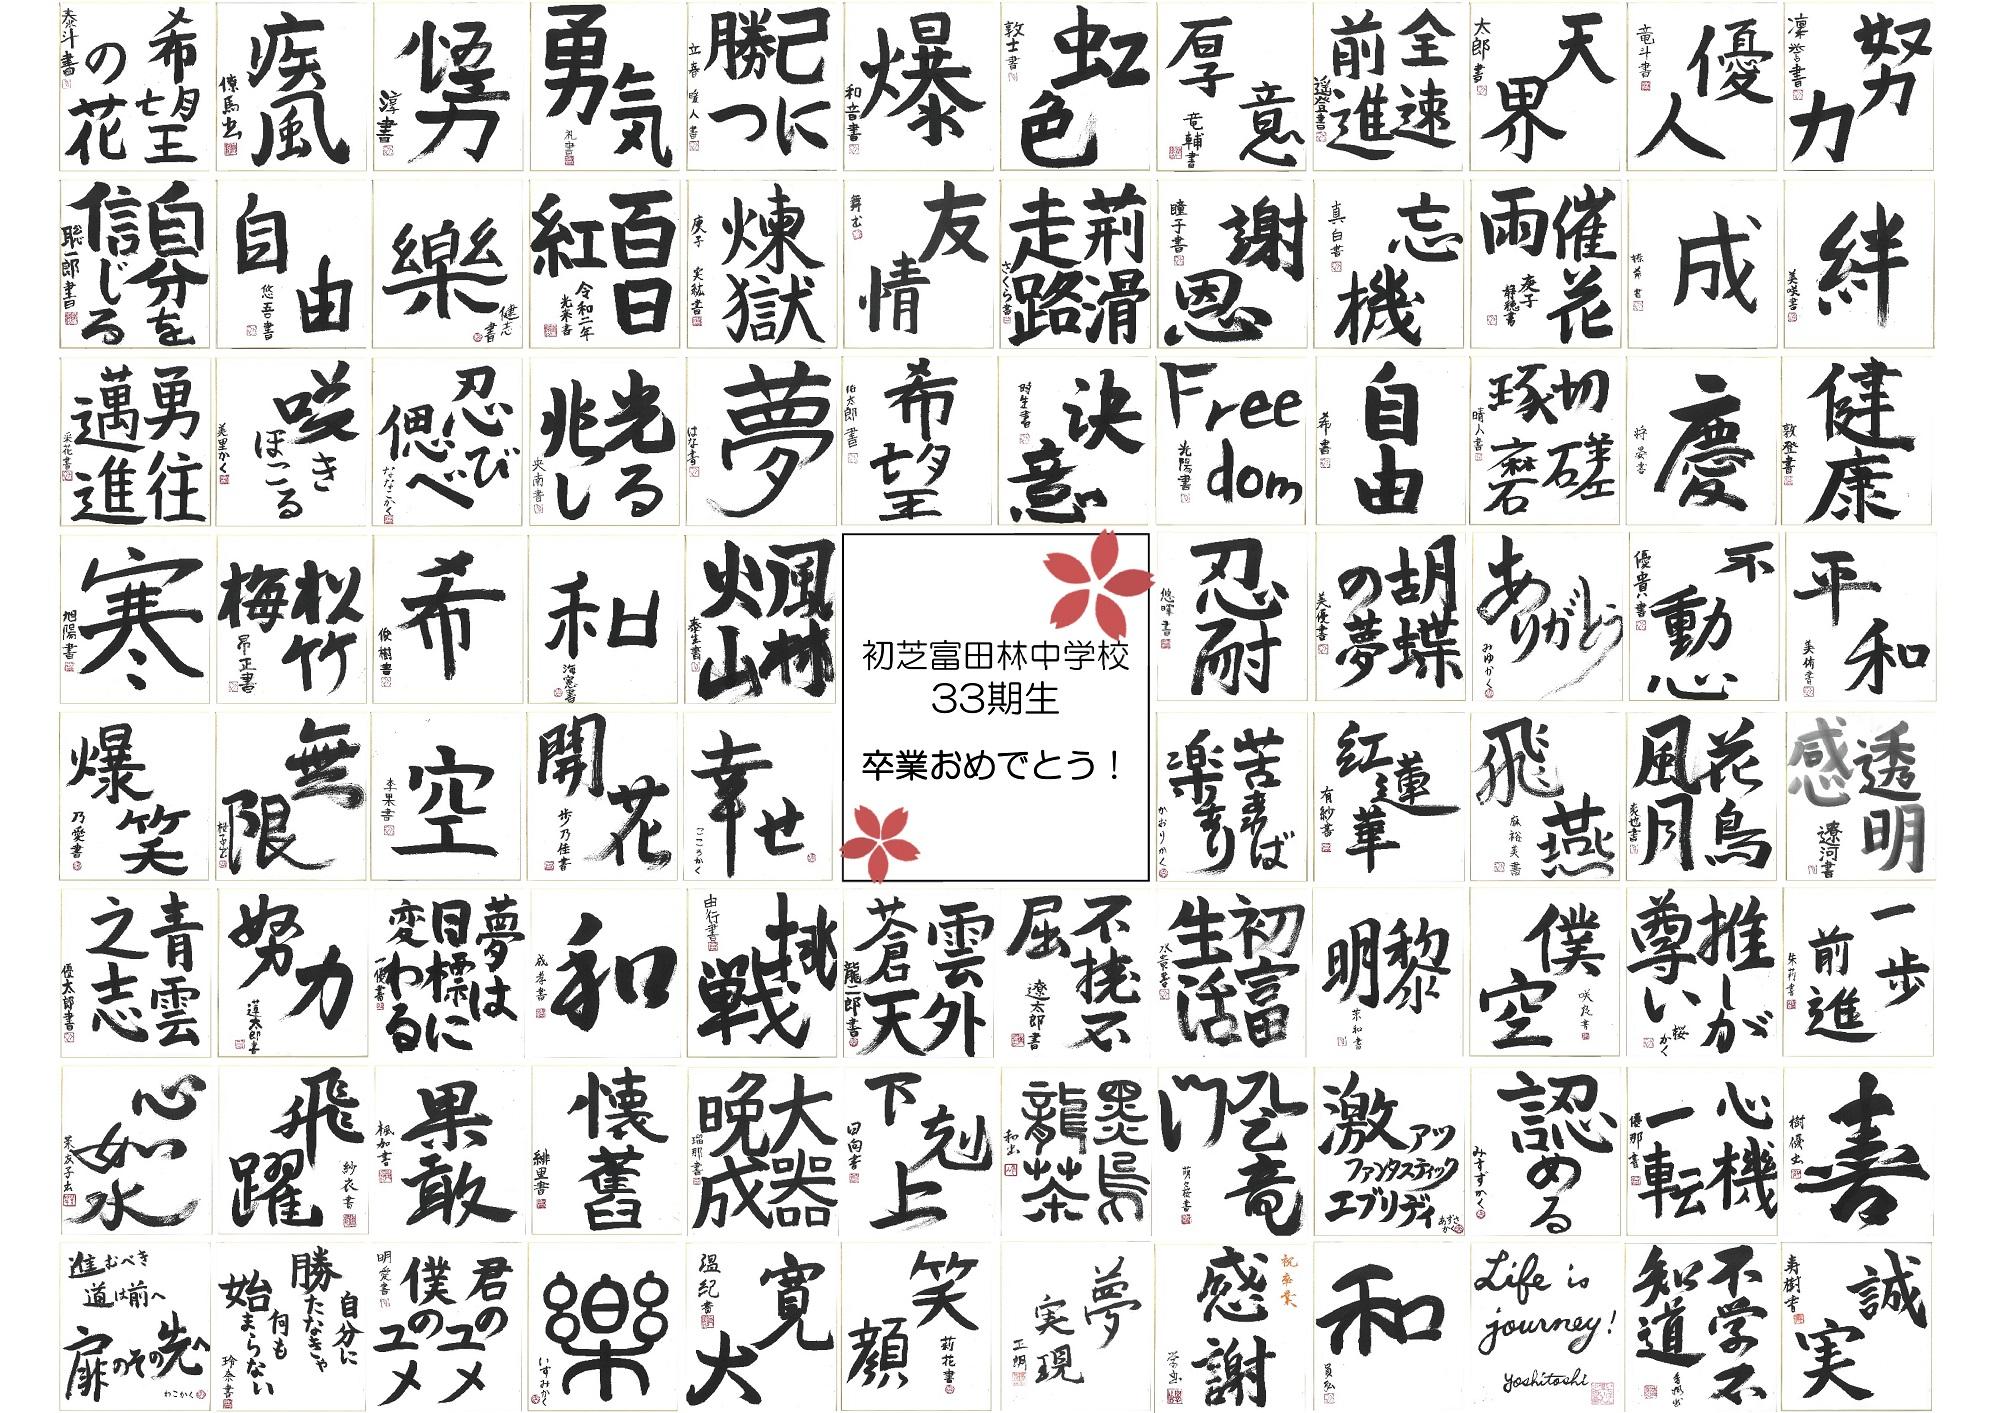 希望
の花
泰斗書
疾風
悟
淳書
勇気
礼書
己に
勝つ
爆
和音書
虹色
敦士書
厚意
竜輔書
全速
前進
天界
太郎書
優人
竜斗書
努力
自分を
信じる
聡一郎書
自由
悠吾書
樂
健志書
百日
紅
令和二年
煉獄
庚子
友情
荊滑
走路
さくら書
謝恩
瞳子書
忘機
真白書
催花
雨
庚子
成
絆
美咲書
勇往
邁進
采花書
咲き
ほこる
美里かく
忍び
偲べ
ななこかく
光る
兆し
夢
はな書
希望
決意
Free
dom
光陽書
自由
希書
切磋
琢磨
晴人書
慶
健康
敦登書
寒
旭陽書
松竹
梅
希
俊樹書
和
海寛書
風林
火山
泰生書
初芝富田林中学校
33期生
卒業おめでとう！
忍耐
悠暉書
胡蝶
の夢
美優書
ありがとう
みゆかく
不動心
優貴書
平和
爆笑
乃愛書
無限
空
李果書
開花
歩乃佳書
幸世
こころかく
苦あれば
楽あり
かおりかく
紅蓮華
有紗書
飛燕
麻裕美書
花鳥
風月
透明
感
遼河書
青雲
之志
優太郎書
努力
蓮太郎書
夢は
目標に
変わる
一優書
和
成孝書
挑戦
由行書
雲外
蒼天
龍二郎書
不撓不
屈
遼太郎書
初富
生活
黎明
僕空
咲良書
推しが
尊い
桜かく
一歩
前進
朱莉書
心如水
飛躍
紗衣書
果敢
楓加書
懐舊
緋里書
大器
晩成
瑠那書
下剋上
日向書
龍茶
登竜
門
激アツ
ファンタスティック
エブリディ
あずさかく
認める
みすずかく
心機
一転
優那書
善
進むべき
道は前へ
扉のその先へ
わこかく
自分に
勝たなきゃ
何も
始まらない
玲奈書
君の
僕の
ユメ
ユメ
明愛書
樂
いずみかく
寛大
温紀書
笑顔
莉花書
夢
実現
祝卒業
感謝
和
Life is
journey!
yoshitoshi
不学不
知道
誠実
寿樹書